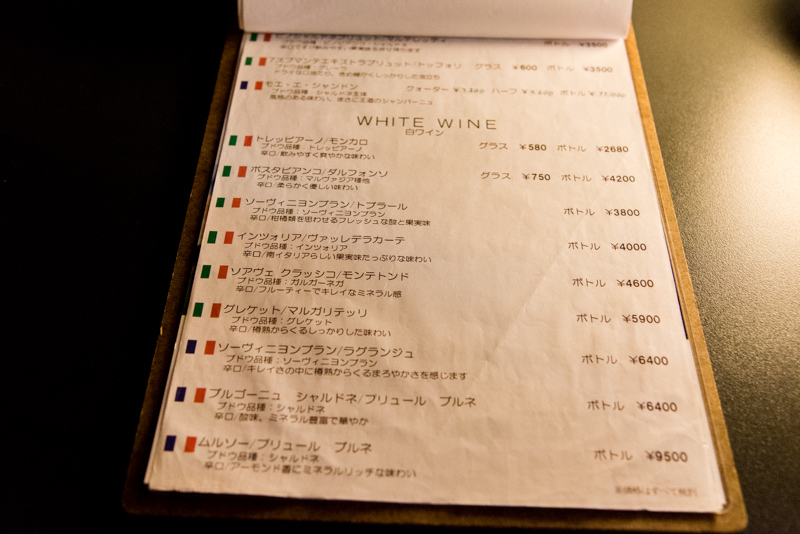 ボトル ¥3500
アスプマンテエキストラブリュット/トッフォリ グラス ¥600 ボトル ¥3500
ブドウ品種：グレーラ
モエ・エ・シャンドン クォーター ハーフ ボトル
ブドウ品種：シャルドネ主体
風格のある味わい、まさに王道のシャンパーニュ
WHITE WINE
白ワイン
トレッビアーノ/モンカロ グラス ¥580 ボトル ¥2680
ブドウ品種：トレッビアーノ
辛口/飲みやすく爽やかな味わい
ポスタビアンコ/ダルフォンソ グラス ¥750 ボトル ¥4200
ブドウ品種：マルヴァジア種他
辛口/柔らかく優しい味わい
ソーヴィニヨンブラン/トプラール ボトル ¥3800
ブドウ品種：ソーヴィニヨンブラン
辛口/柑橘類を思わせるフレッシュな酸と果実味
インツォリア/ヴァッレデラカーテ ボトル ¥4000
ブドウ品種：インツォリア
辛口/南イタリアらしい果実味たっぷりな味わい
ソアヴェ クラッシコ/モンテトンド ボトル ¥4600
ブドウ品種：ガルガーネガ
辛口/フルーティーでキレイなミネラル感
グレケット/マルガリテッリ ボトル ¥5900
ブドウ品種：グレケット
辛口/樽熟からくるしっかりした味わい
ソーヴィニヨンブラン/ラグランジュ ボトル ¥6400
ブドウ品種：ソーヴィニヨンブラン
辛口/キレイさの中に樽熟からくるまろやかさを感じます
ブルゴーニュ シャルドネ/ブリュール ブルネ ボトル ¥6400
ブドウ品種：シャルドネ
辛口/酸味、ミネラル豊富で華やか
ムルソー/ブリュール ブルネ ボトル ¥9500
ブドウ品種：シャルドネ
辛口/アーモンド香にミネラルリッチな味わい